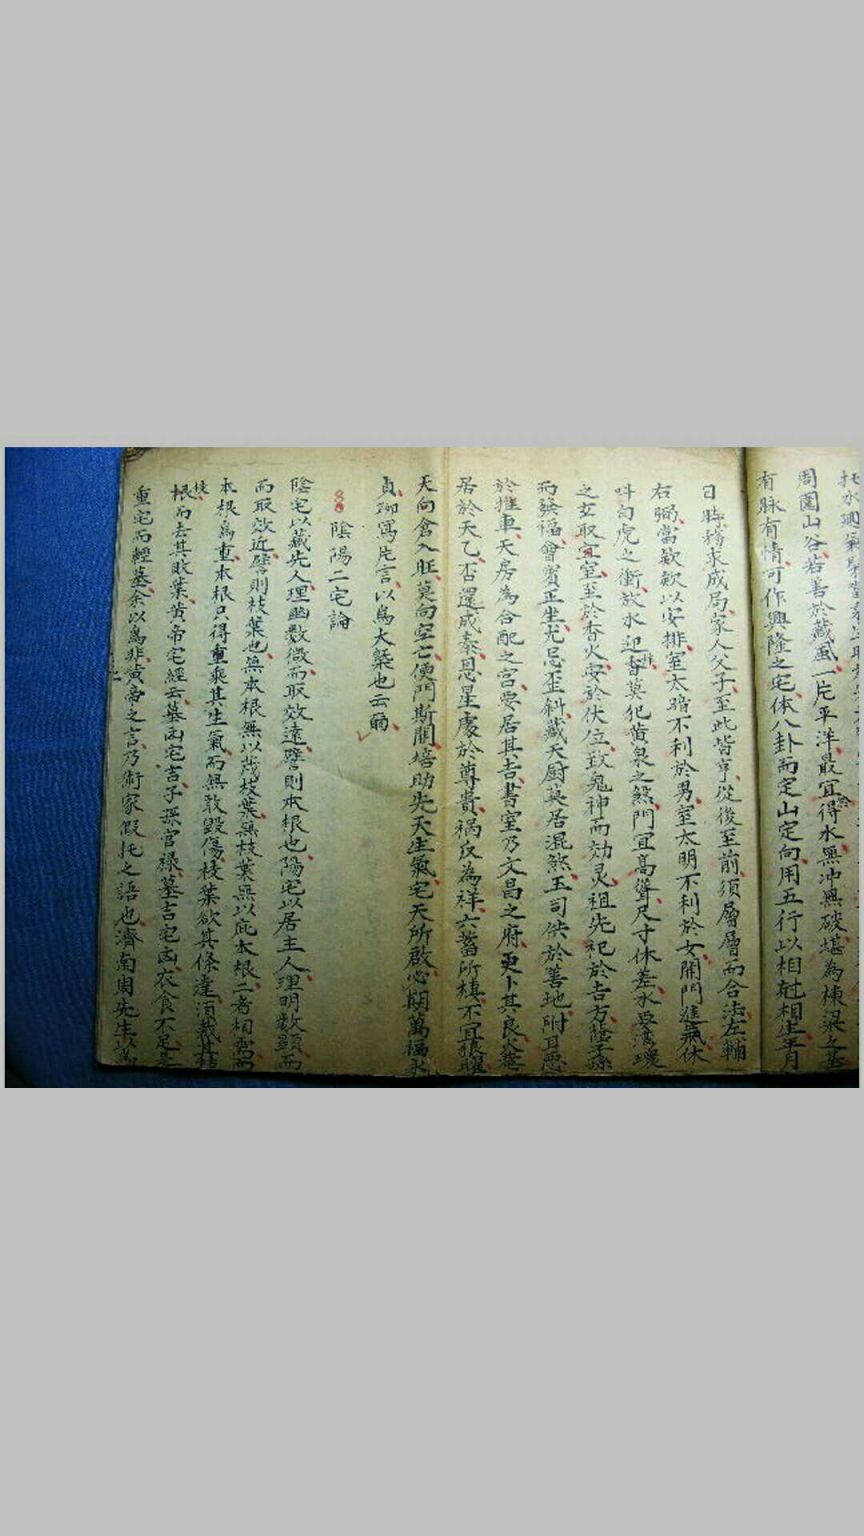 周圍山谷若善於藏風一片平洋最宜得水無冲無破堪為棟梁之基
有脉有情可作興隆之宅体八卦而定山定向用五行以相尅相生年月
日時務求成局家人父子至此皆亨從後至前須層層而合法左輔
右弼當欵欵以安排室太暗不利於男室太明不利於女開門進氣休
呌白虎之衝放水迎香莫犯黄泉之煞門宜高聳尺寸休差水要湾環
之玄取宜室至於香火安於伏位致鬼神而効灵祖先祀於吉方蔭子孫
而發福會賓正坐尤忌歪斜藏天厨莫居混煞玉司供於善地附耳
於推車天房為合配之宮要居其吉書室乃文昌之府更卜其良火
居於天乙否還成泰恩星處於尊貴祸反為祥六畜所棲不宜狼
天向倉入旺莫向空亡便門斯開培助先天生氣宅天所啟必期萬福
貞聊寫片言以為大槩也云爾
陰陽二宅論
陰宅以藏先人理幽数微而取效遠譬則本根也陽宅以居主人理明数顕而
而取效近譬則枝葉也無本根無以茂枝葉無枝葉無以庇本根二者相需而
本根為重本根只得重乘其生氣而無敢毀傷枝葉欲其條達須栽其
根而去其敗葉黄帝宅經云墓凶宅吉子孫官禄墓吉宅凶衣食不足
重宅而輕墓余以為非黄帝之言乃術家假托之語也濟南周先生